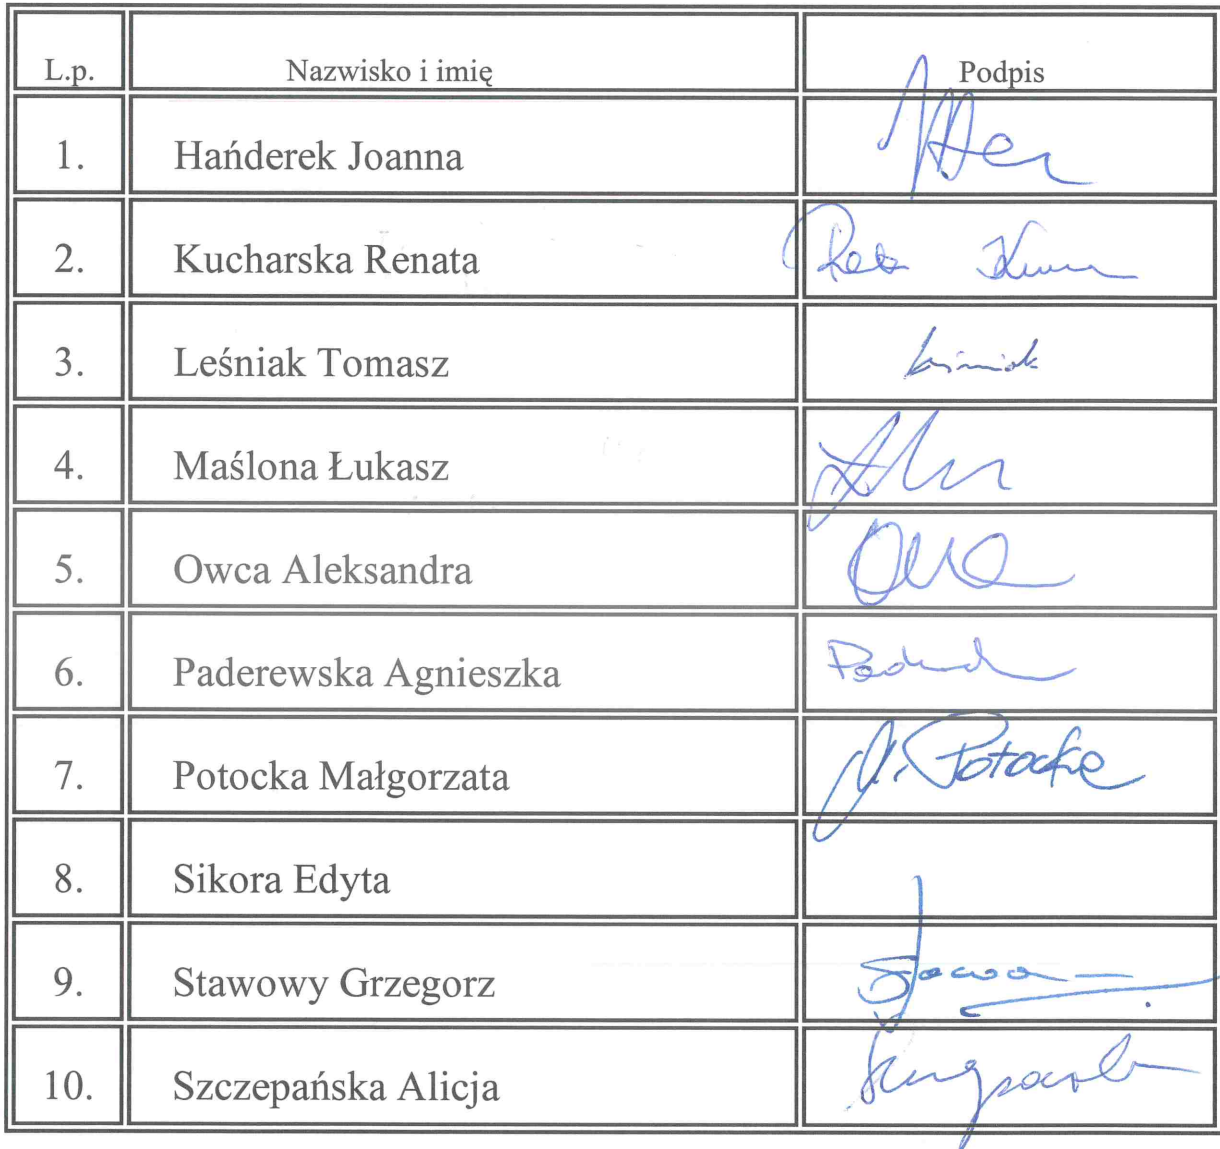 L.p. Nazwisko i imię Podpis
1. Hańderek Joanna
2. Kucharska Renata
3. Leśniak Tomasz Leśniak
4. Maślona Łukasz
5. Owca Aleksandra
6. Paderewska Agnieszka
7. Potocka Małgorzata M. Potocka
8. Sikora Edyta
9. Stawowy Grzegorz
10. Szczepańska Alicja